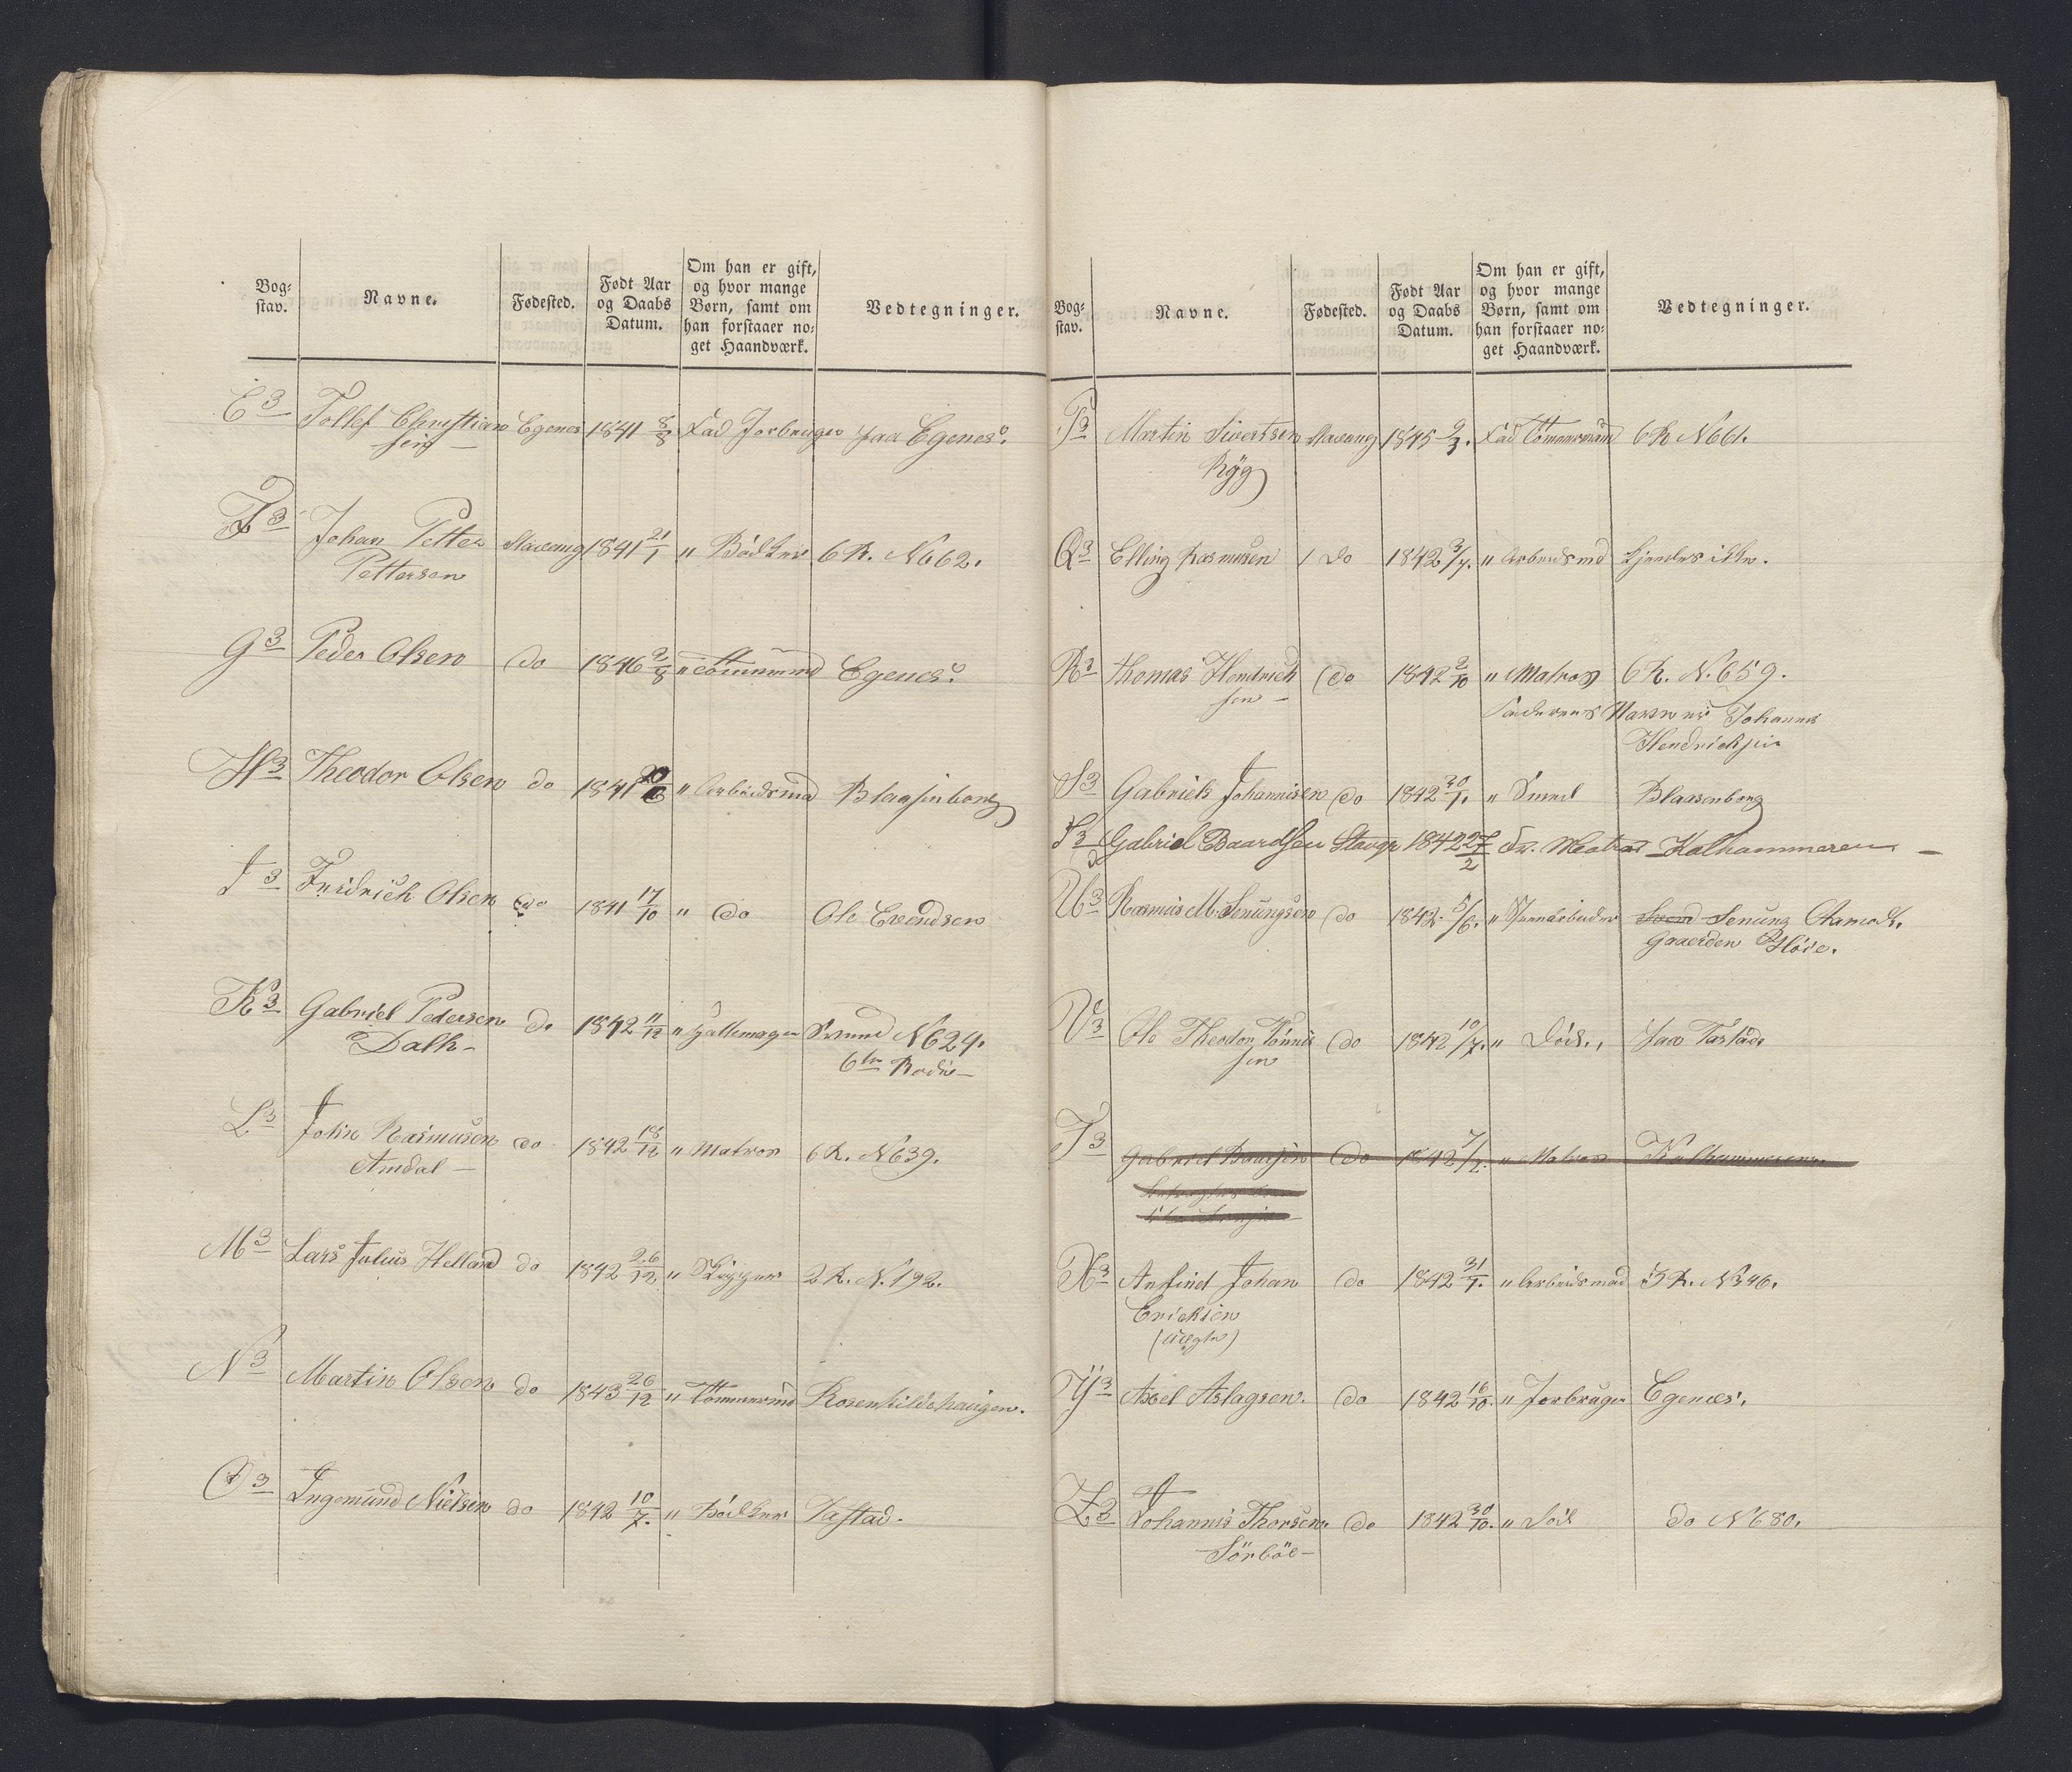 Bog-
stav.
Navne.
Fødested.
Født Aar
og Daabs
Datum.
Om han er gift,
og hvor mange
Børn, samt om
han forstaaer no-
get Haandværk.
Vedtegninger.
E3 Tollef Christian Egenes 1841 8/8 Fad Jorbruger paa Egenes.
sen
F3 Johan Petter Stavang 1841 21/1 " Bödker 6 R. No 62.
Pettersen
G3 Peder Olsen do 1846 2/8 " Tömmermd Egenes.
H3 Theodor Olsen do 1841 " Arbeidsmd Blaasenborg
I3 Fredrich Olsen do 1841 17/10 " do Ole Evendsen
K3 Gabriel Pedersen do 1842 11/12 " Svend N 624.
Dalh 6te Rode
L3 John Rasmusen do 1842 18/12 " Matros 6 R. N 639.
Amdal
M3 Lars Julius Helland do 1842 26/12 " Skipper 2 R. N. 192.
N3 Martin Olsen do 1843 26/12 " Tömmermd Rosenkildehaugen.
O3 Ingemund Nielsen do 1842 10/7. " Bödker Tastad.
Bog-
stav.
Navne.
Fødested.
Født Aar
og Daabs
Datum.
Om han er gift,
og hvor mange
Børn, samt om
han forstaaer no-
get Haandværk.
Vedtegninger.
P3 Martin Sivertsen Stavang 1845 9/3. Fad Tömmermand 6 R N 661.
Ryg
Q3 Elling Rasmusen do 1842 3/7. " Arbeidsmd kjendes ikke.
R3 Thomas Hendrich do 1842 2/10 " Matros 6 R. N. 659.
sen Faderens Navn er Johannes
Hendrichsen
S3 Gabriels Johannisen do 1842 30/1. " Smed Blaasenborg
T3 Gabriel Baardsen Stavgr 1842 27/2 Fr. Matros Kalhammeren
U3 Rasmus M. Senungsen do 1842. 5/6. " Svend Senung Aamodt.
Gaarden Bløie.
V3 Ole Theodor Tönnis do 1842 10/7. " Död., paa Tastad.
sen
T3 Gabriel Baarsen do 1842 7/2. " Matros Kalhammeren.
X3 Anfind Johan do 1842 31/1. " Arbeidsmad 5 R. N 346.
Ericksen
(uægte)
Y3 Axel Aslagsen. do 1842 16/10. " Jorbruger Egenes.
Z3 Johannis Thorsen. do 1842 30/10. " Död do N 680.
Sörböe